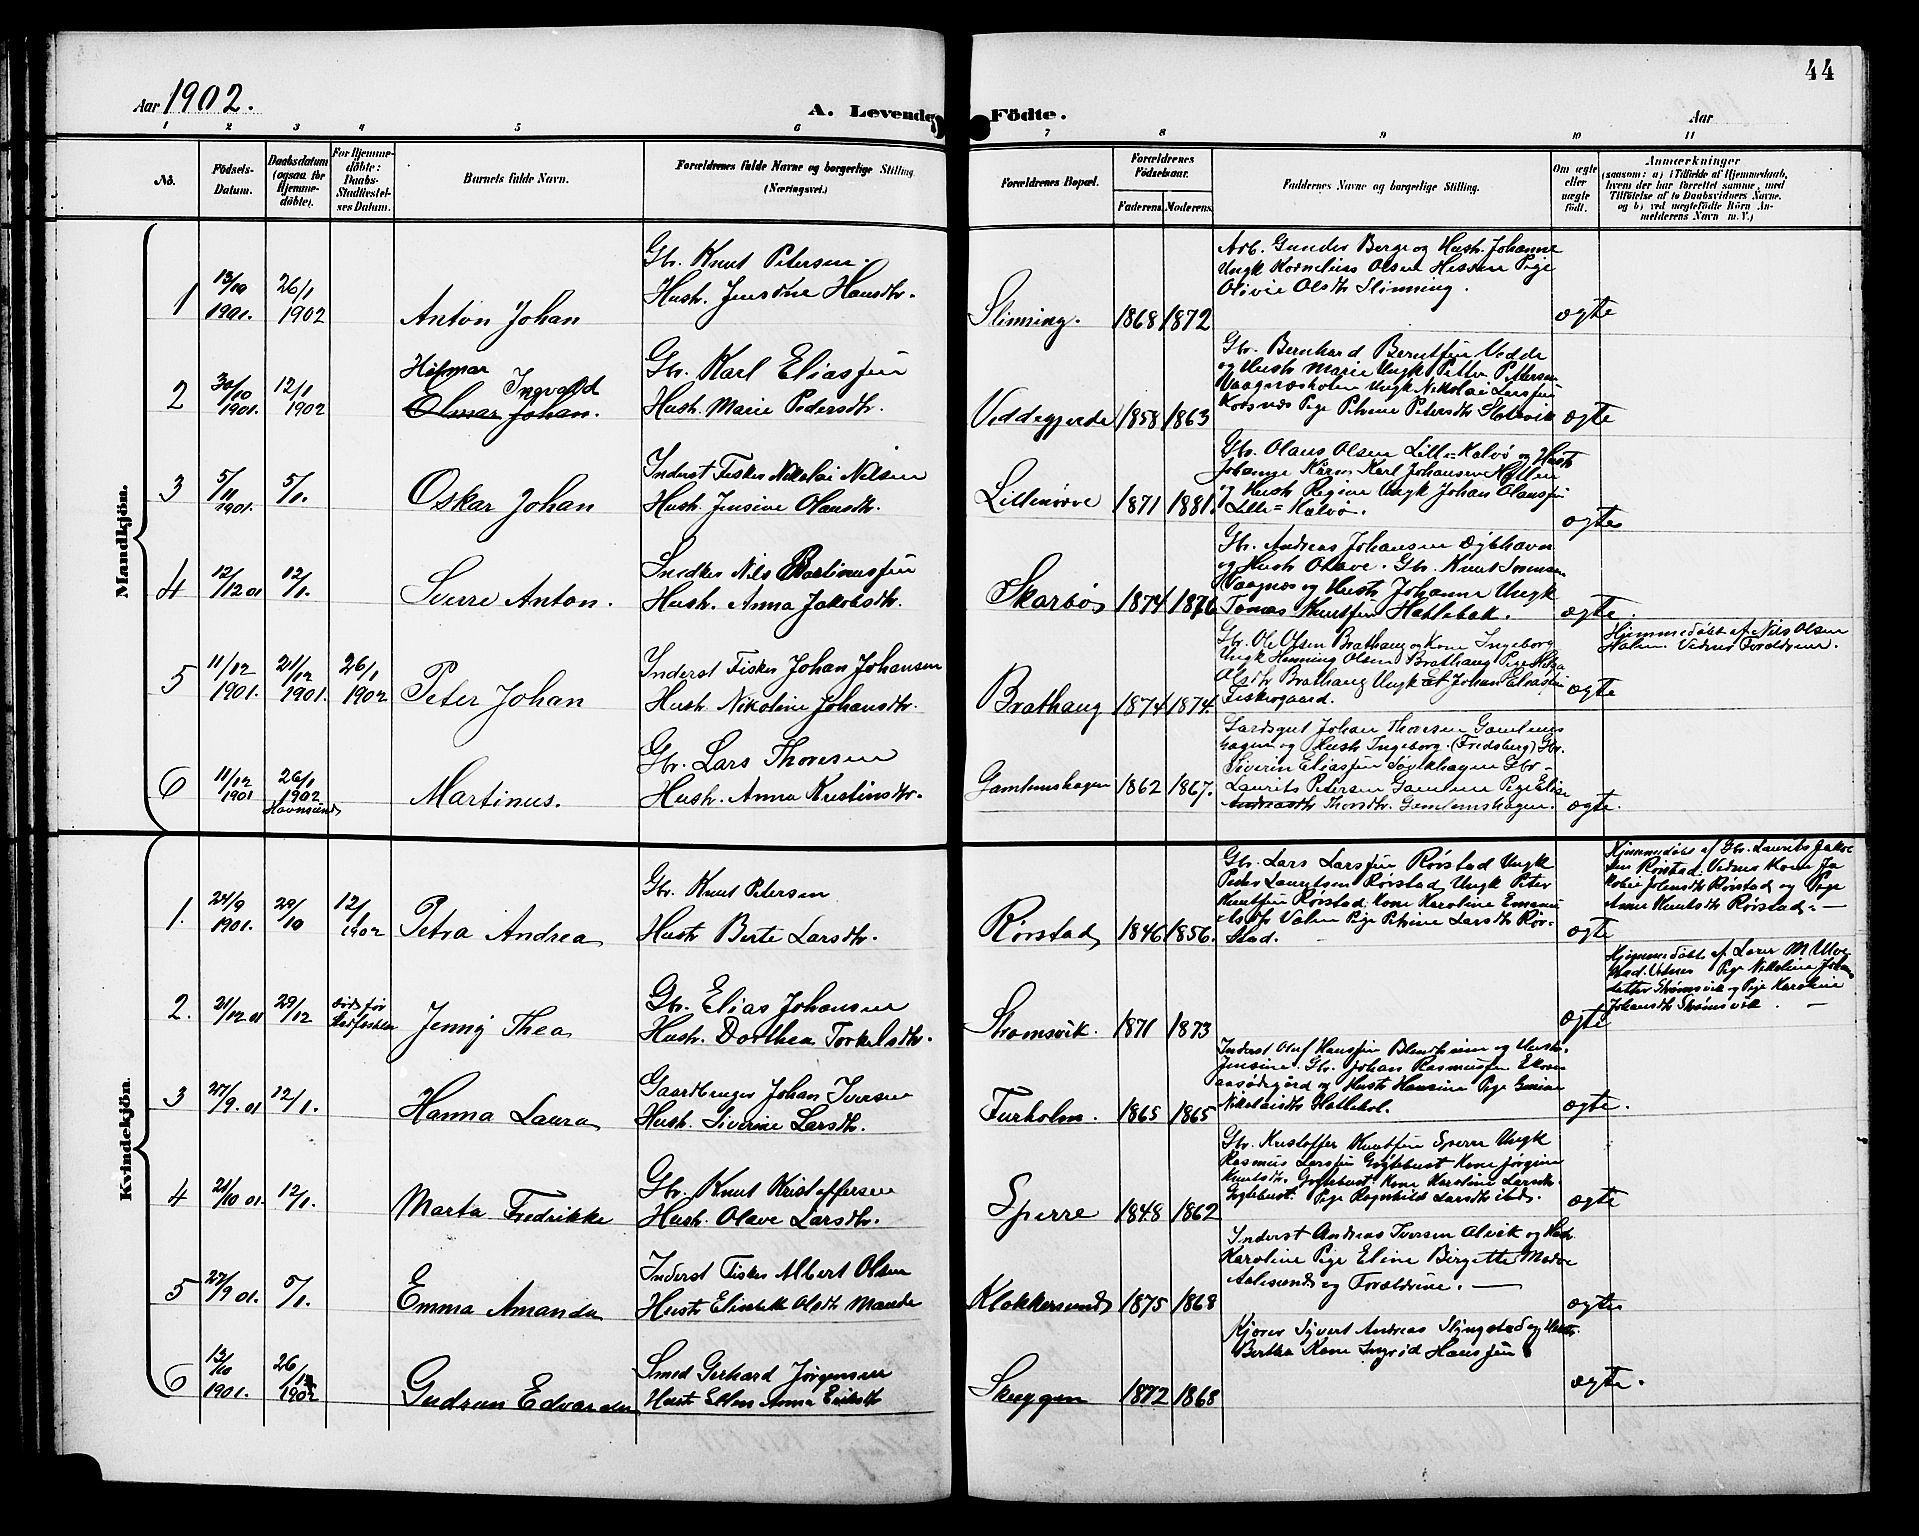 44
Aar 1902.
A. Levende Födte.
Aar
1 2 3 4 5 6 7 8 9 10 11
No.
Födsels-
Datum.
Daabsdatum
(ogsaa for
Hjemme-
döbte).
For Hjemme-
döbte:
Daabs-
Stadfæstel-
ses Datum.
Barnets fulde Navn.
Forældrenes fulde Navne og borgerlige Stilling.
(Næringsvei.)
Forældrenes Bopæl.
Forældrenes
Födselsaar.
Faderens. Moderens.
Faddernes Navne og borgerlige Stilling.
Om ægte
eller
uægte
födt.
Anmærkninger
(saasom: a) i Tilfælde af Hjemmedaab,
hvem der har forrettet samme, med
Tilföielse af to Daabsvidners Navne,
og b) ved uægtefödte Börn An-
melderens Navn m. V.)
Mandkjön.
1 13/10 1901. 26/1 1902 Anton Johan
Gbr. Knut Petersen.
Hustr. Jensine Hansdtr.
Slinning. 1868 1872
Arb. Gunder Berge og Hustr. Johanne
Ungk Kornelius Olsen Hessen Pige
Olivie Olsdtr Slinning.
ægte
2 30/10 1901. 12/1 1902
Hilmar Ingvald
Olmar Johan.
Gbr. Karl Eliassen
Hustr. Marie Pedersdtr.
Veddegjerde 1858 1863
Gbr. Bernhard Berntsen Vedde
og Hustr Marie Ungk Petter Pettersen
Vaagnæsholm Ungk Nikolai Larssen
Korsnæs Pige Petrine Petersdtr Slotsvik
ægte
3 5/11 1901. 5/1. Oskar Johan
Inderst Fisker Nikolai Nilsen
Hustr. Jensine Olausdtr.
Lillenørve 1871 1881.
Gbr. Olaus Olsen Lille-Kalvø og Hustr
Johanne Karl Johansen
og Hustr Regine Ungk Johan Olaussen
Lille=Kalvø.
ægte
4 12/12 01 12/1. Sverre Anton.
Snedker Nils Martinussen
Hustr. Anna Jakobsdtr.
Skarbøs 1874 1876
Gbr. Andreas Johansen Dybhavn
og Hustr Olave. Gbr. Knut Sørensen
Vaagnæs og Hustr Johanne Ungk
Tomas Knutsen Hatlebak.
ægte
5 11/12 1901. 21/12 1901. 26/1 1902 Peter Johan
Inderst Fisker Johan Johansen
Hustr. Nikoline Johansdtr.
Brathaug 1874 1874.
Gbr. Ole Olsen Brathaug og Kone Ingeborg
Ungk Henning Olsen Brathaug Pige
Olsdtr Brathaug Ungk Johan Eliassen
Fiskergaard.
ægte
Hjemmedøbt af Nils Olsen
Holm. Vidner Forældrene.
6 11/12 1901 26/1 1902 Havnsund Martinus.
Gbr. Lars Thoresen
Hustr. Anna Kristinsdtr.
Gamlemshagen 1862 1867.
Gaardsgut Johan Thoresen Gamlems
hagen og Hustr Ingeborg. (Fredsberg) Gbr.
Siverin Eliassen Søvikhagen Gbr
Laurits Petersen Gamlem Pige Elise
Andreasdtr Thorsdtr. Gamlemshagen.
ægte.
Kvindekjön.
1. 24/9 1901. 29/10 12/1 1902 Petra Andrea
Gbr. Knut Petersen
Hustr Berte Larsdtr.
Rørstad 1846 1856.
Gbr. Lars Larssen Rørstad Ungk
Peder Lauritsen Rørstad Ungk Peter
Knutsen Rørstad Kone Karoline
Pige Petrine Larsdtr Rør-
stad.
ægte
Hjemmedøbt af Gbr. Laurits Jakob
sen Rørstad Vidner Kone Ja
kobie Johnsdtr Rørstad og Pige
Anne Knutsdtr Rørstad.
2. 21/12 01 29/12 døde før Stadfæstelsen Jenny Thea
Gbr. Elias Johansen
Hustr. Dorthea Torkelsdtr.
Strømsvik. 1871 1873
ægte
Hjemmedøbt af Lærer M. Ulve
stad. Vidner Pige Nikoline Johans
datter Strømsvik og Pige Karoline
Johansdtr Strømsvik.
3 27/9. 01 12/1. Hanna Laura
Gaardbruger Johan Iversen
Hustr. Siverine Larsdtr.
Furholm. 1865 1865
Inderst Oluf Hanssen Blindheim og Hustr.
Jensine. Gbr. Johan Rasmussen
og Hustr Hansine Pige
Nikolaisdtr Hatlehol.
ægte.
4 21/10 01. 12/1. Marta Fredrikke
Gbr. Knut Kristoffersen
Hustr. Olave Larsdtr.
Sperre 1848 1862
Gbr. Kristoffer Knutsen Sperre Ungk
Rasmus Larssen Gøytebust Kone Jørgine
Knutsdtr. Gøytebust Kone Karoline Larsdtr.
Gøytebust. Pige Ragnhild Larsdtr ibd.
ægte
5 27/9 01. 5/1. Emma Amanda
Inderst Fisker Albert Olsen
Hustr Elisabeth Olsdtr
Klokkersund 1875 1868
Inderst Andreas Iversen Alvik og Hustr
Karoline Pige Eline Birgitte
Aalesund og Forældrene.
ægte
6 13/10 1901. 26/1 1902 Gudrun Edvarda
Smed Gerhard Jørgensen
Hustr Ellen Anna Eriksdtr
Skuggen 1872 1868
Kjører Syvert Andreas Slyngstad og Hustr.
Bertha Kone Ingrid Hanssen
ægte.